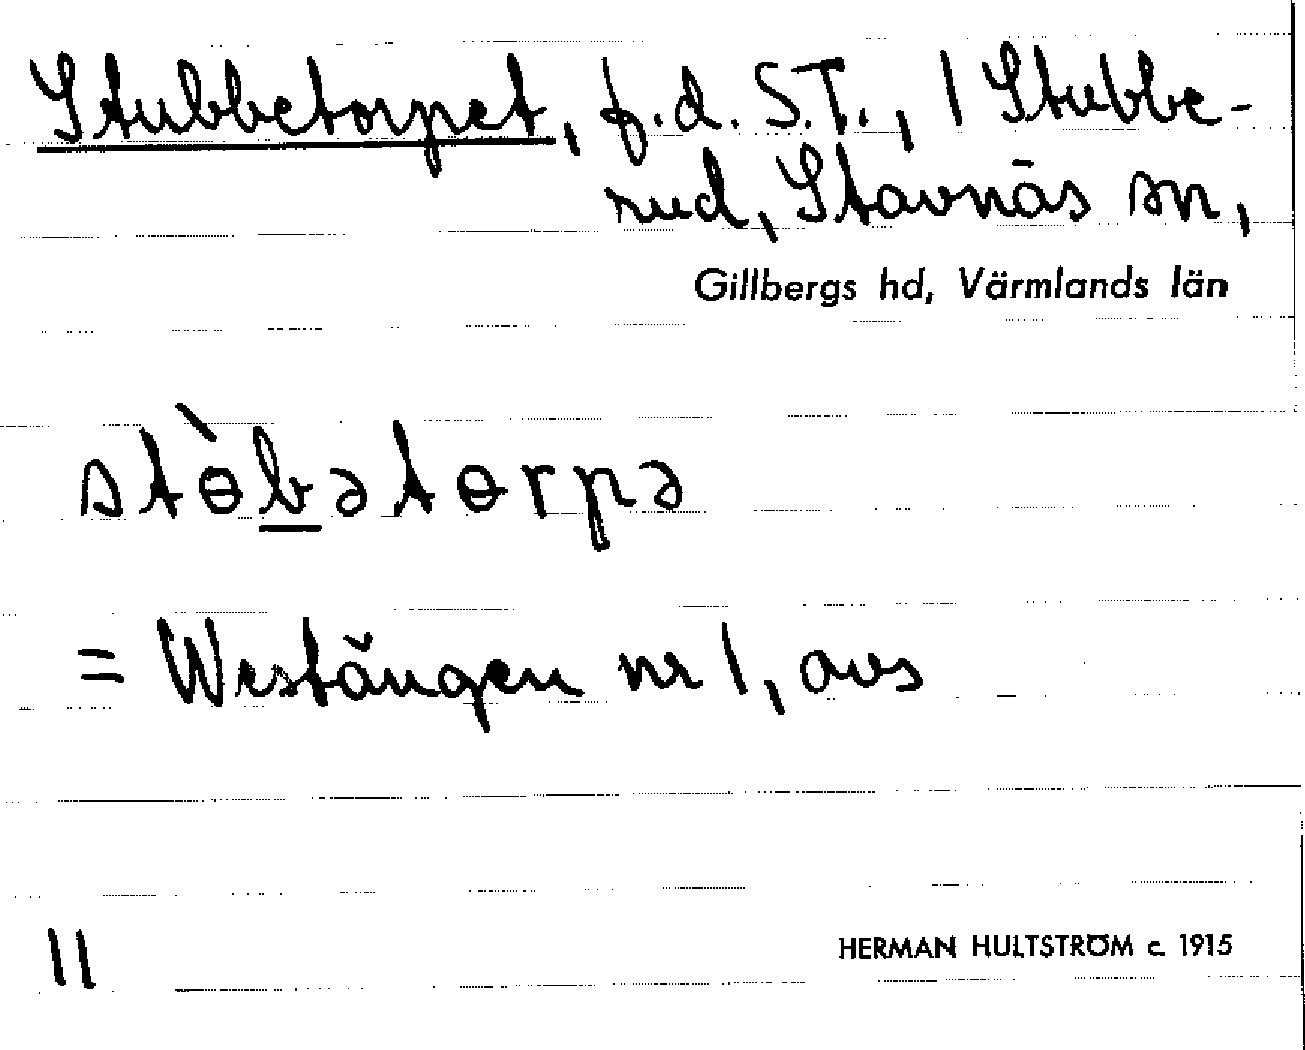 Stubbetorpet, f.d. S.T., 1 Stubbe-
rud, Stavnäs sn,
Gillbergs hd, Värmlands län
stɵ̀b̲ətɵrpə
= Westängen nr 1, avs
11
HERMAN HULTSTRÖM c. 1915